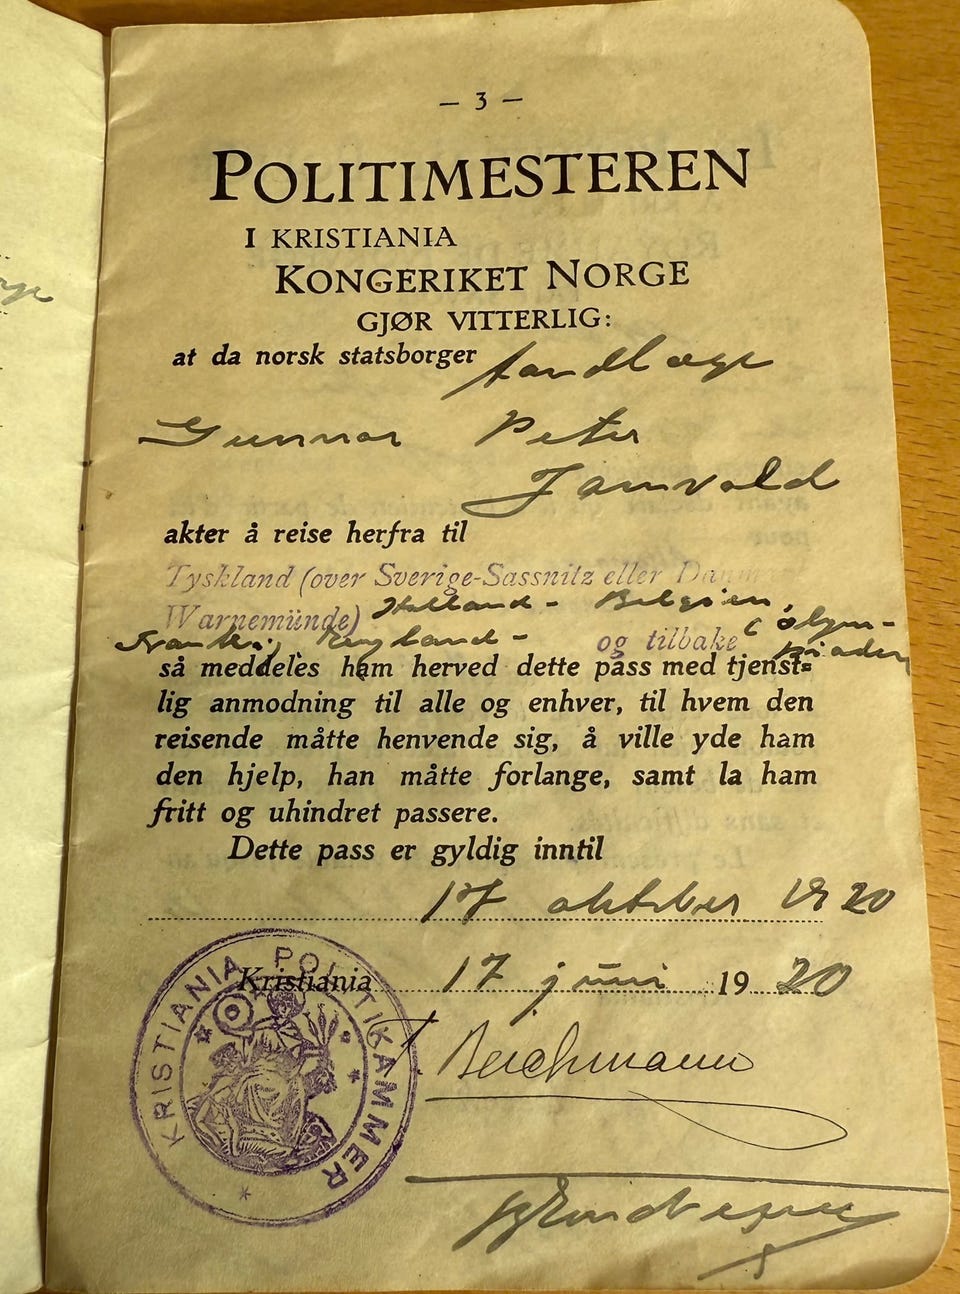 — 3 —
POLITIMESTEREN
I KRISTIANIA
KONGERIKET NORGE
GJØR VITTERLIG:
at da norsk statsborger tandlæge
Gunnar Peter
Jamvold
akter å reise herfra til
Tyskland (over Sverige-Sassnitz eller Danmark
Warnemünde) Holland - Belgien,
Frankrig England - og tilbake (olym-
piaden
så meddeles ham herved dette pass med tjenst=
lig anmodning til alle og enhver, til hvem den
reisende måtte henvende sig, å ville yde ham
den hjelp, han måtte forlange, samt la ham
fritt og uhindret passere.
Dette pass er gyldig inntil
17 oktober 1920
Kristiania 17 juni 1920
KRISTIANIA POLITIKAMMER